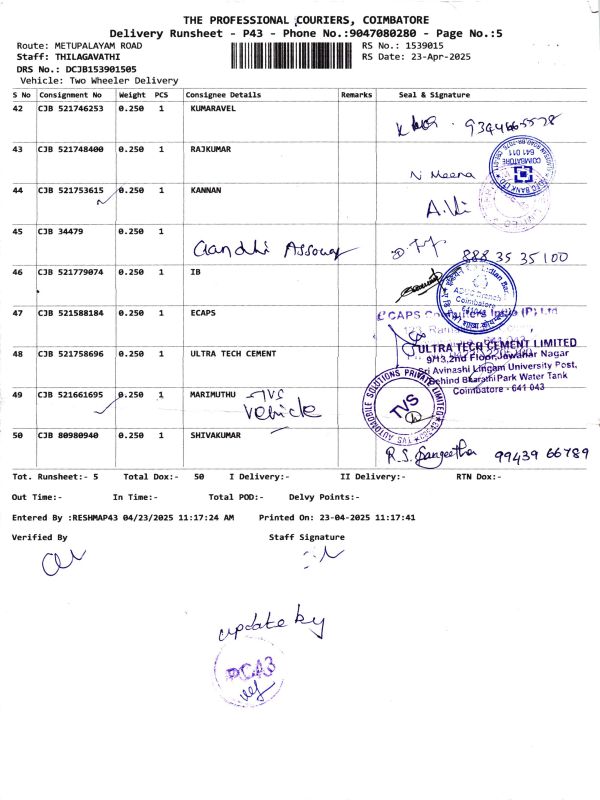 THE PROFESSIONAL COURIERS, COIMBATORE
Delivery Runsheet - P43 - Phone No.:9047080280 - Page No.:5
Route: METUPALAYAM ROAD RS No.: 1539015
Staff: THILAGAVATHI RS Date: 23-Apr-2025
DRS No.: DCJB153901505
Vehicle: Two Wheeler Delivery
S No Consignment No Weight PCS Consignee Details Remarks Seal & Signature
42 CJB 521746253 0.250 1 KUMARAVEL
43 CJB 521748400 0.250 1 RAJKUMAR N Meena
COIMBATORE
641 011
44 CJB 521753615 0.250 1 KANNAN
45 CJB 34479 0.250 1 Gandhi 888 35 35 100
46 CJB 521779074 0.250 1 IB
Coimbatore
47 CJB 521588184 0.250 1 ECAPS
48 CJB 521758696 0.250 1 ULTRA TECH CEMENT
ULTRA TECH CEMENT LIMITED
9/13,2nd Floor,Jawahar Nagar
Sri Avinashi Lingam University Post,
Behind Bharathi Park Water Tank
Coimbatore - 641 043
49 CJB 521661695 0.250 1 MARIMUTHU - TVS
Vehicle
TVS AUTOMOBILE SOLUTIONS PRIVATE LIMITED
TVS
50 CJB 80980940 0.250 1 SHIVAKUMAR
R.S. Sangeetha 99439 66789
Tot. Runsheet:- 5 Total Dox:- 50 I Delivery:- II Delivery:- RTN Dox:-
Out Time:- In Time:- Total POD:- Delvy Points:-
Entered By :RESHMAP43 04/23/2025 11:17:24 AM Printed On: 23-04-2025 11:17:41
Verified By Staff Signature
update by
PC43